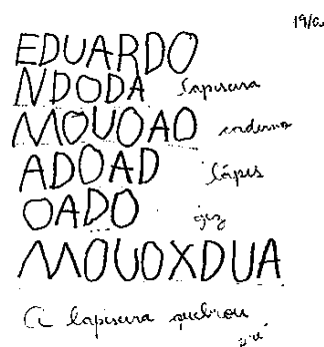 EDUARDO
NDODA lapiseira
MOUOAO caderno
ADOAD lápis
OADO giz
MOUOXDUA
A lapiseira quebrou